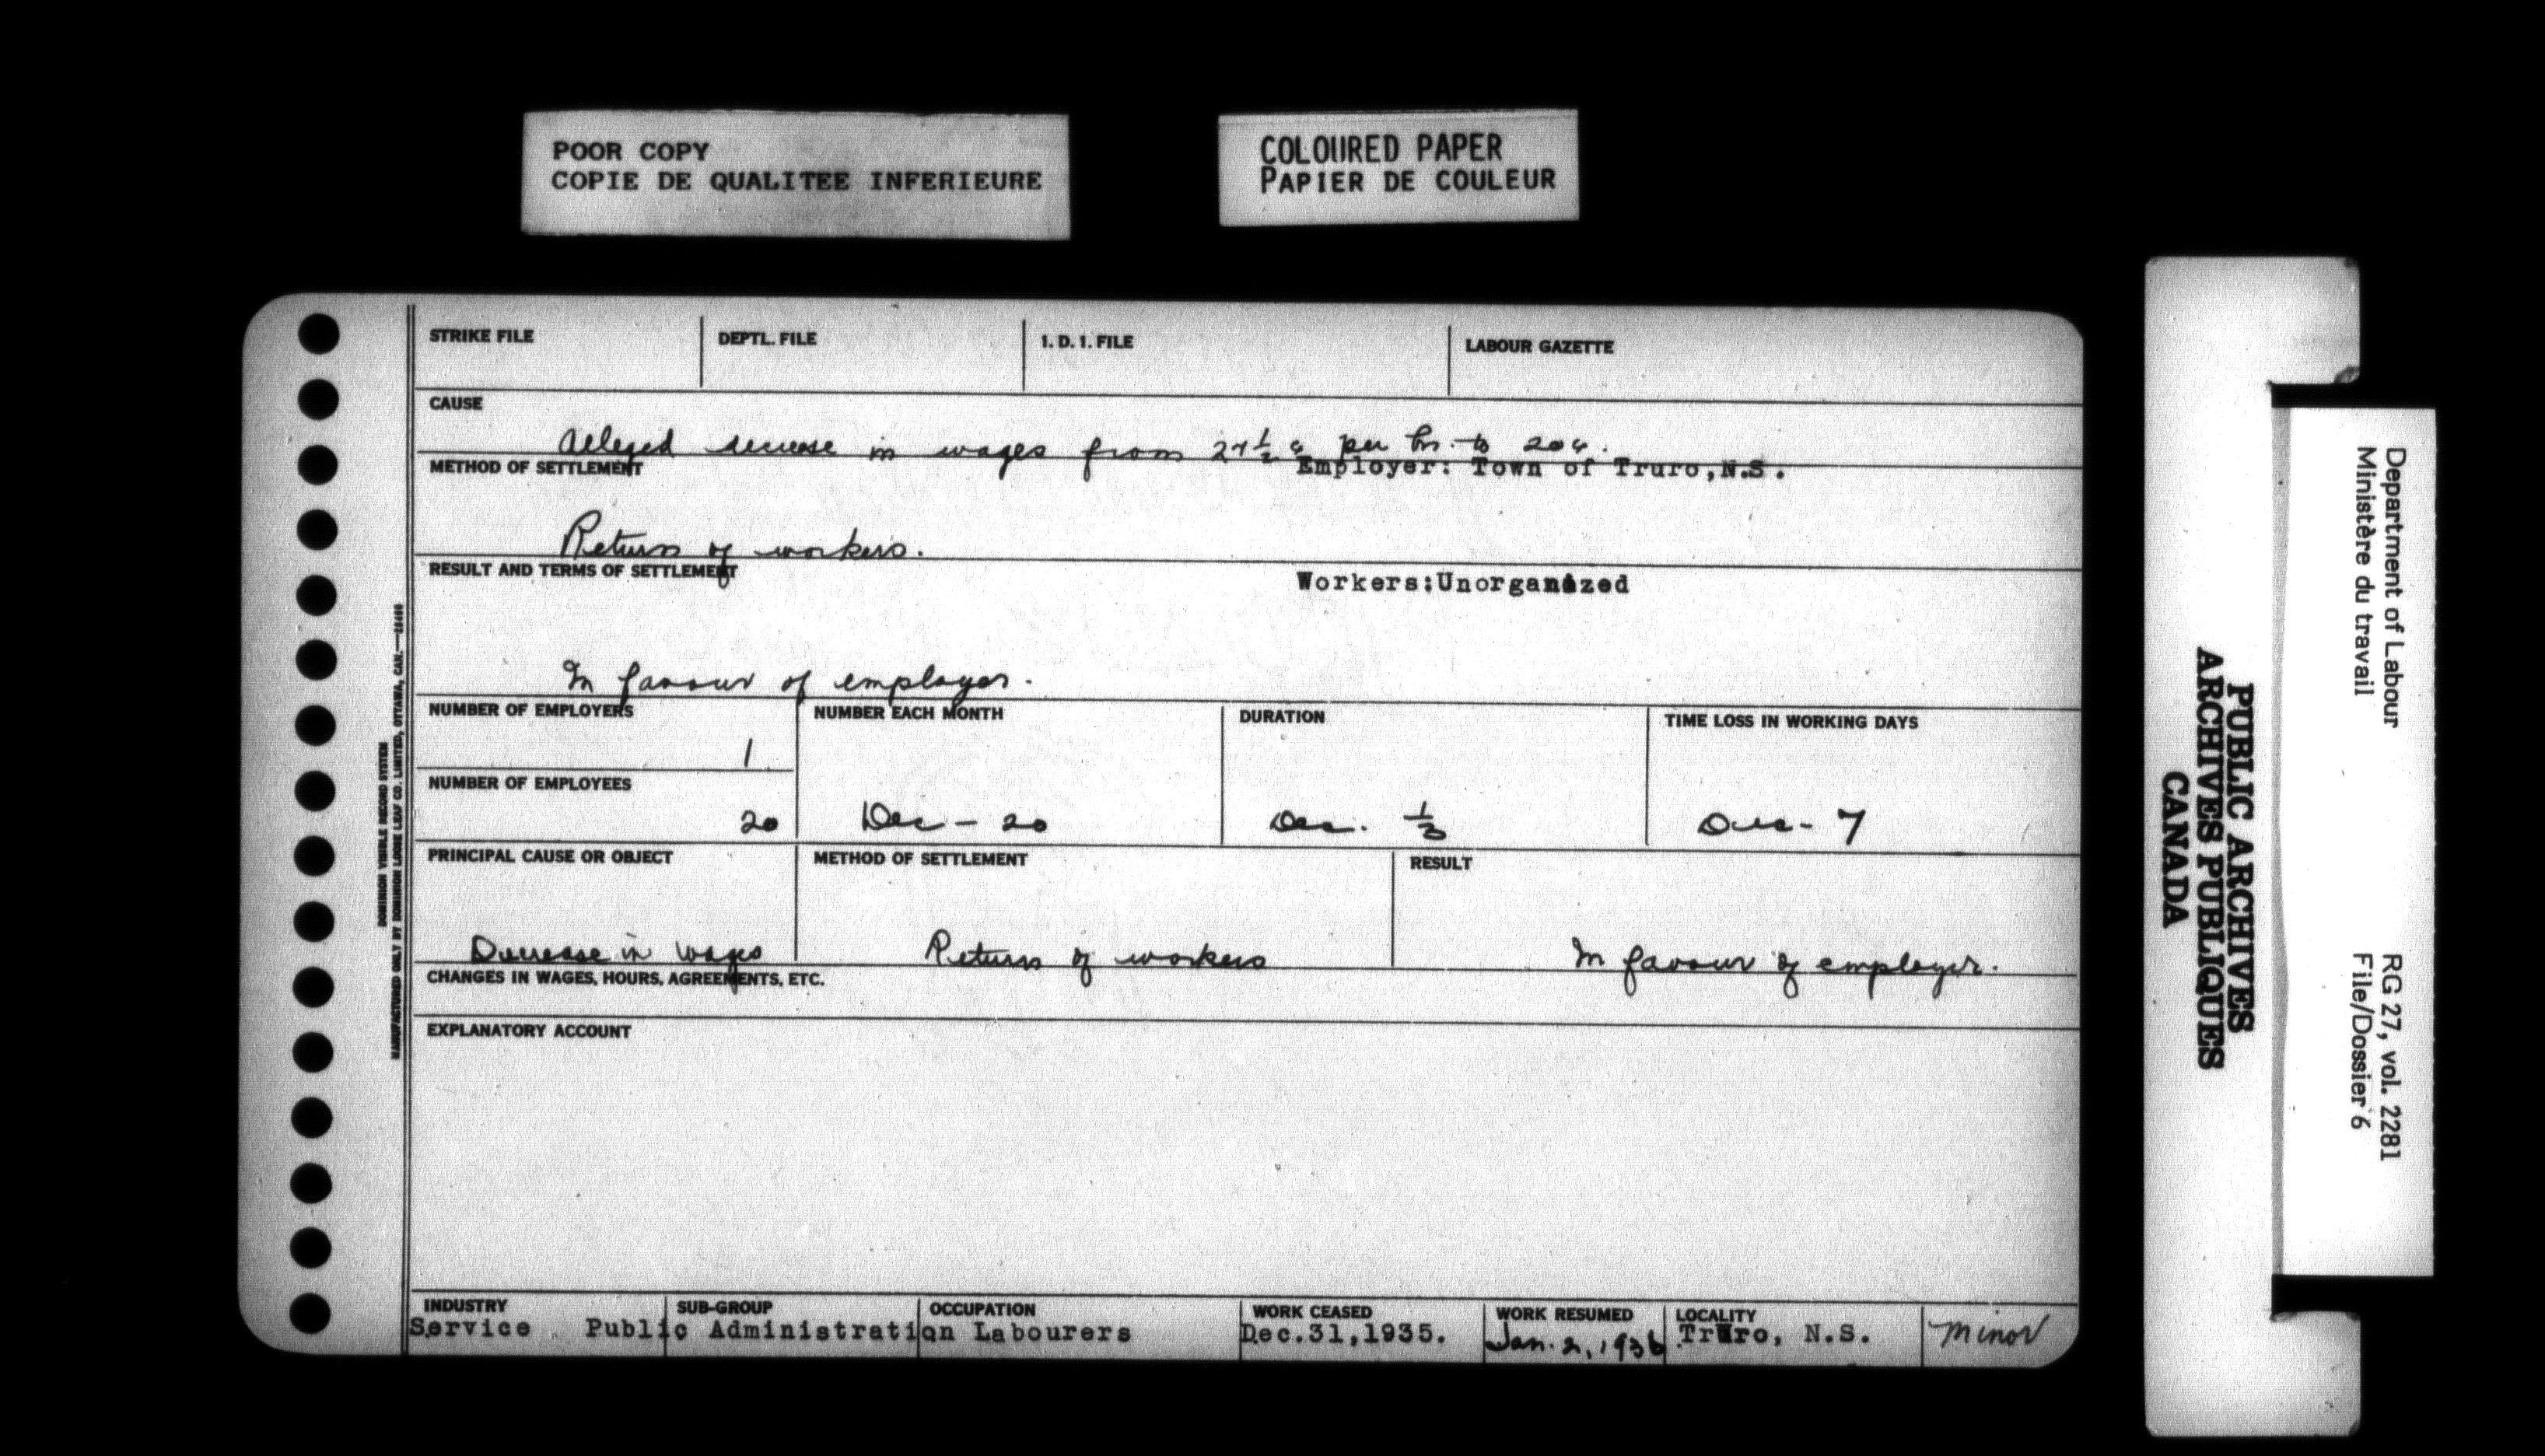 POOR COPY
COPIE DE QUALITEE INFERIEURE
COLOURED PAPER
PAPIER DE COULEUR
STRIKE FILE
DEPTL. FILE
I. D. I. FILE
LABOUR GAZETTE
CAUSE
Alleged decrease in wages from 27½ ¢ per hr. to 20¢.
METHOD OF SETTLEMENT
Employer: Town of Truro,N.S.
Return of workers.
RESULT AND TERMS OF SETTLEMENT
Workers:Unorganized
In favour of employer.
NUMBER OF EMPLOYERS
1
NUMBER EACH MONTH
DURATION
TIME LOSS IN WORKING DAYS
NUMBER OF EMPLOYEES
20
Dec - 20
Dec. ⅓
Dec - 7
PRINCIPAL CAUSE OR OBJECT
METHOD OF SETTLEMENT
RESULT
Decrease in wages
Return of workers
In favour of employer.
CHANGES IN WAGES, HOURS, AGREEMENTS, ETC.
EXPLANATORY ACCOUNT
INDUSTRY
SUB-GROUP
OCCUPATION
WORK CEASED
WORK RESUMED
LOCALITY
Service
Public Administration
Labourers
Dec.31,1935.
Jan. 2, 1936
Truro, N.S.
Minor
DOMINION VISIBLE RECORD SYSTEM
MANUFACTURED ONLY BY DOMINION LOOSE LEAF CO. LIMITED, OTTAWA, CAN.
PUBLIC ARCHIVES
ARCHIVES PUBLIQUES
CANADA
Department of Labour
Ministère du travail
RG 27, vol. 2281
File/Dossier 6